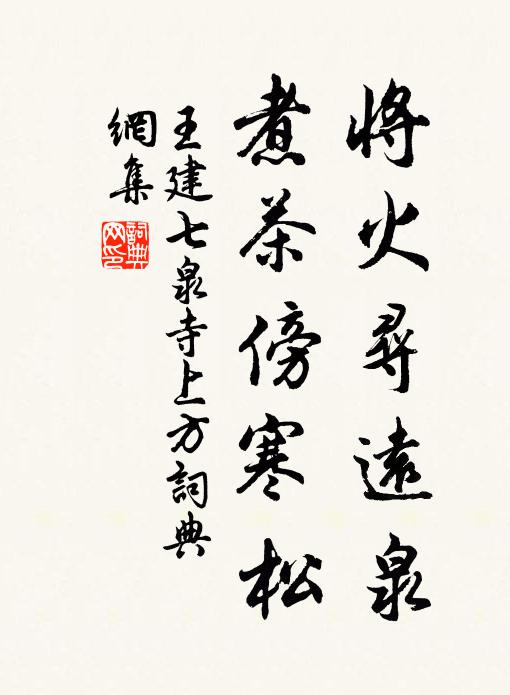 將火尋遠泉
煮茶傍寒松
王建七泉寺上方詞典
網集
詞典网印